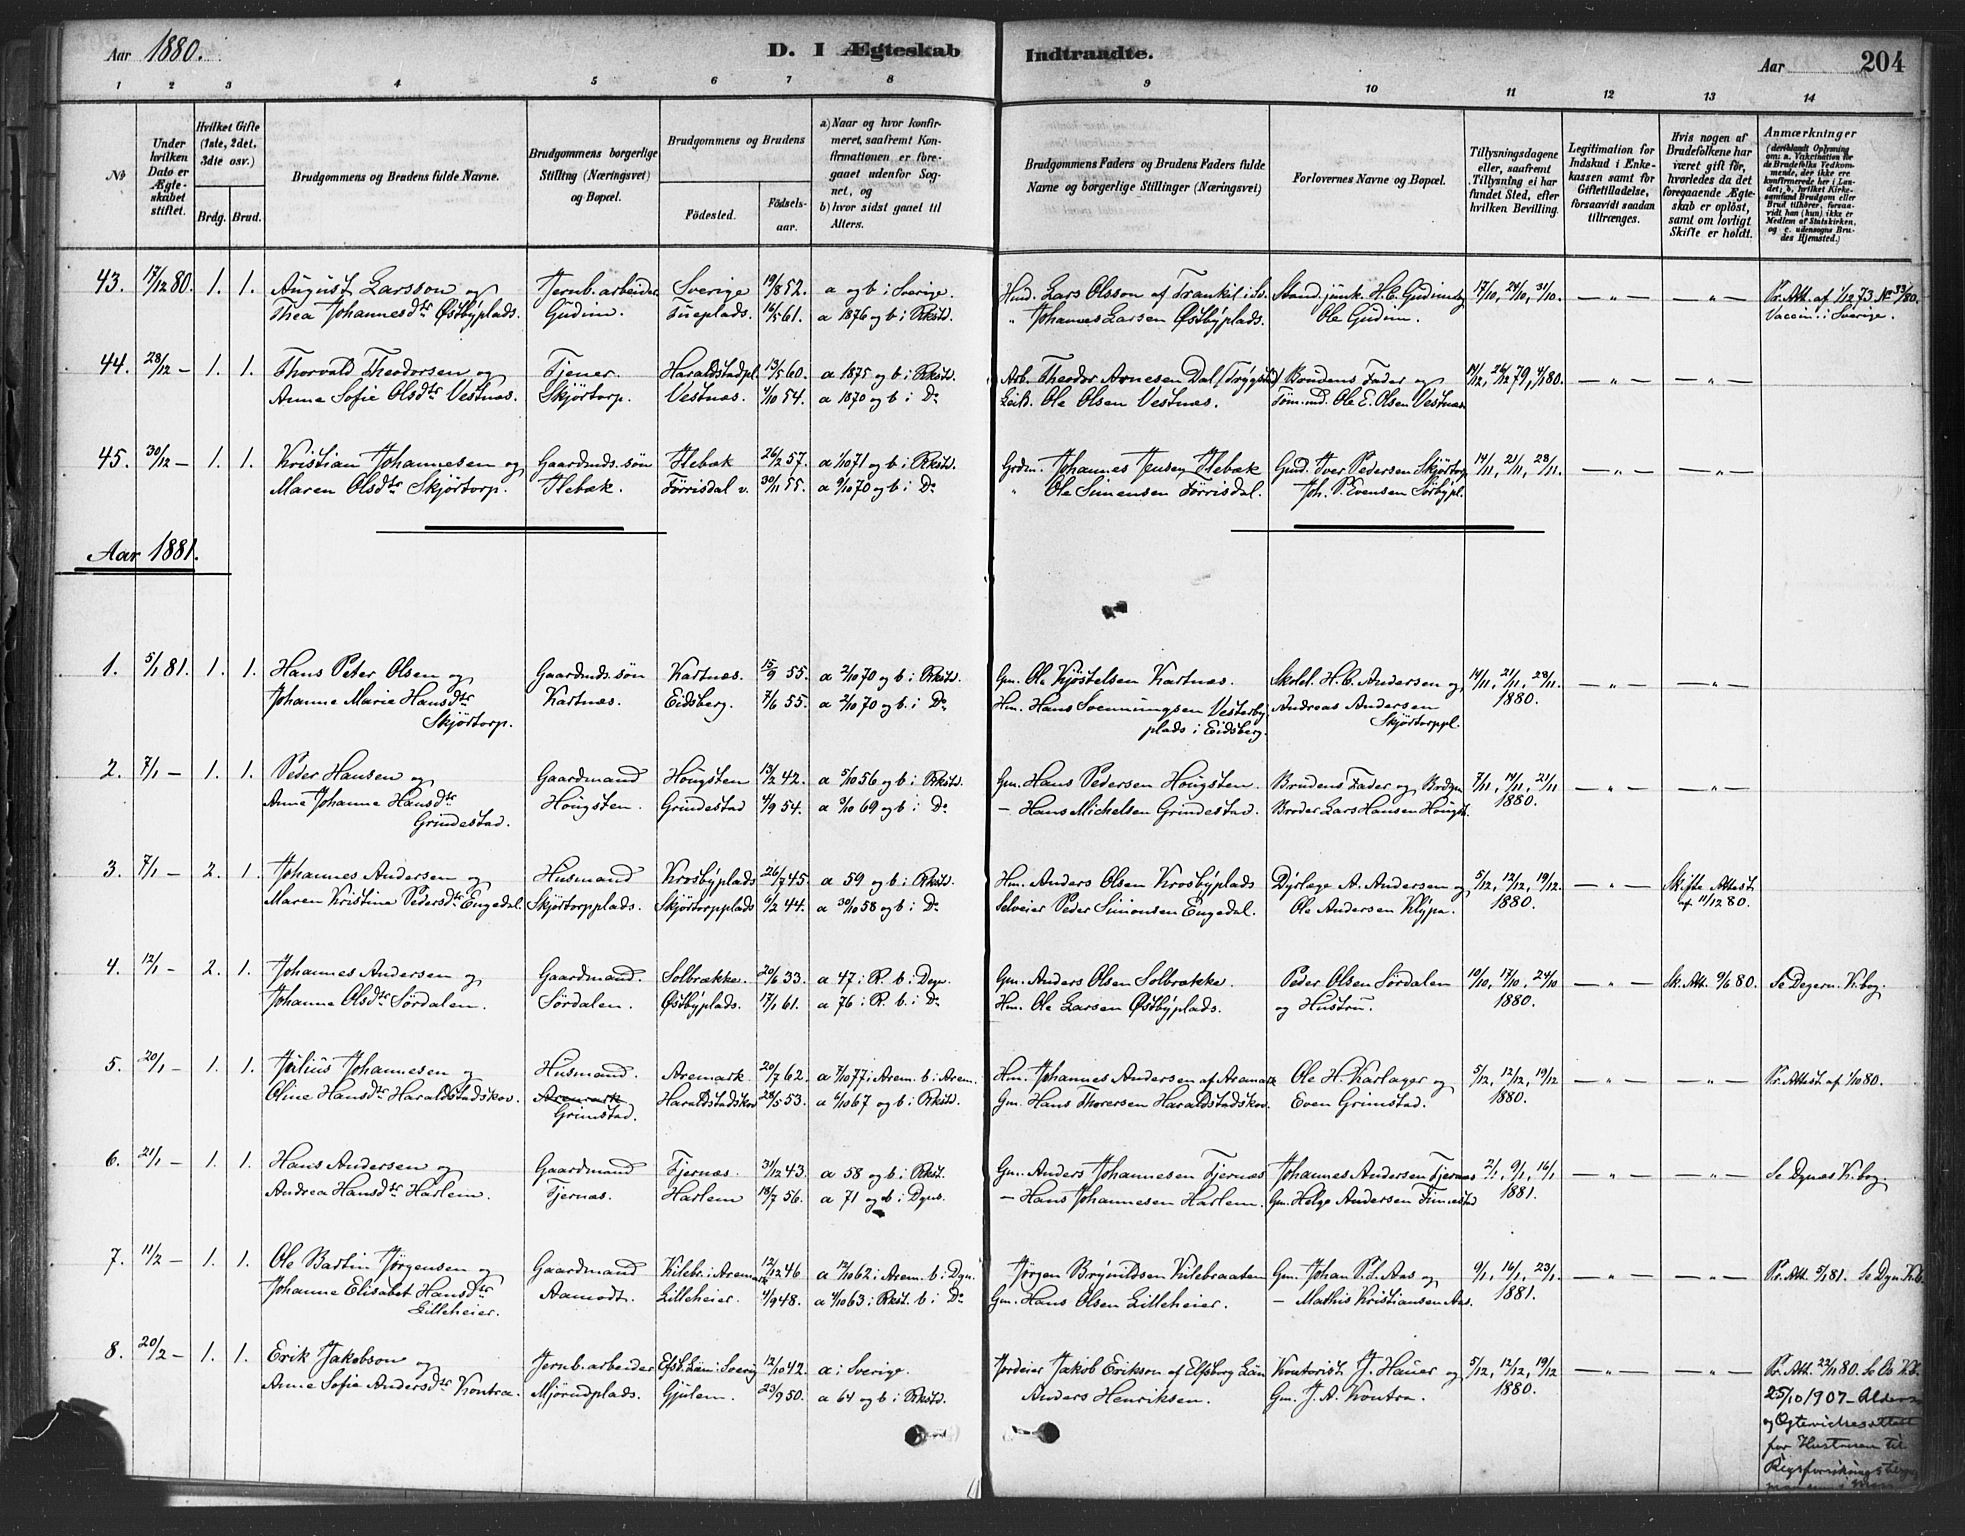 Aar 1880. D. I Ægteskab Indtraadte. Aar 204
1 2 3 4 5 6 7 8 9 10 11 12 13 14
No
Under hvilken Dato er Ægteskabet stiftet.
Hvilket Gifte (1ste, 2det, 3die osv.)
Brdg. Brud.
Brudgommens og Brudens fulde Navne.
Brudgommens borgerlige Stilling (Næringsvei) og Bopæl.
Brudgommens og Brudens
Fødested. Fødselsaar.
a) Naar og hvor konfirmeret, saafremt Konfirmationen er foregaaet udenfor Sognet, og
b) hvor sidst gaaet til Alters.
Brudgommens Faders og Brudens Faders fulde Navne og borgerlige Stillinger (Næringsvei)
Forlovernes Navne og Bopæl.
Tillysningsdagene eller, saafremt Tillysning ei har fundet Sted, efter hvilken Bevilling.
Legitimation for Indskud i Enkekassen samt for Giftetilladelse, forsaavidt saadan tiltrænges.
Hvis nogen af Brudefolkene har været gift før, hvorledes da det foregaaende Ægteskab er opløst, samt om lovligt Skifte er holdt.
Anmærkninger
43. 17/12 80. 1. 1. August Larsson og Jernb.arbeider Sverige 19/8 52. a og b i Sverige. Hmd. Lars Olsson af Trankil i Sv. 17/10, 24/10, 31/10. — „ — — „ — Pr. Att. af 1/12 73 No 33/80.
Thea Johannesdtr Østbyplads. Gudim. 16/5 61. a 1876 og b i Rkstd. „ Johannes Larsen Østbyplads. Ole Gudim. Vaccin. i Sverige.
44. 28/12 — 1. 1. Thorvald Theodorsen og Tjener Haraldstadpl. 13/5 60. a 1875 og b i Rkstd. Arb. Theodor Arnesen Dal (Trygstad) Brudens Fader og 19/12, 26/12 79, 4/1 80. — „ — — „ —
Anne Sofie Olsdtr Vestnæs. Skjørtorp. Vestnæs. 4/10 54. a 1870 og b i Do Ole Olsen Vestnæs. Tøm.md. Ole E. Olsen Vestnæs
45. 30/12 — 1. 1. Kristian Johannesen og Gaardmds.søn Ilebæk 26/2 57. a 1/10 71 og b i Rkstd. Grdm. Johannes Jensen Ilebæk Gmd. Iver Pedersen Skjørtorp 14/11, 21/11, 28/11. — „ — — „ —
Maren Olsdtr Skjørtorp. Ilebæk. Tørrisdal v. 30/11 55. a 9/10 70 og b i Do „ Ole Simensen Tørrisdal. Joh. P. Evensen Sörbypl.
Aar 1881.
1. 5/1 81. 1. 1. Hans Peter Olsen og Gaardmds.søn Kartnæs. 15/9 55. a 2/10 70 og b i Rkstd. Gm. Ole Kjöstelsen Kartnæs. Skolel. H. C. Andersen og 14/11, 21/11, 28/11. — „ — — „ —
Johanne Marie Hansdtr Kartnæs. Eidsberg. 7/6 55. a 2/10 70 og b. i Do Hm. Hans Svenningsen Vesterby Andreas Andersen 1880.
Skjørtorp. plads i Eidsberg. Skjørtorppl.
2. 7/1 — 1. 1. Peder Hansen og Gaardmand Höugsten 13/2 42. a 5/10 56 og b i Rkstd. Gm. Hans Pedersen Höugsten. Brudens Fader og Brdgm 7/11, 14/11, 21/11 — „ — — „ —
Anne Johanne Hansdtr Höugsten. Grindestad 4/9 54. a 3/10 69 og b i Do — Hans Michelsen Grindestad. Broder Lars Hansen Höugst. 1880.
Grindestad.
3. 7/1 — 2. 1. Johannes Andersen og Husmand Krosbyplads 26/7 45. a 59 og b i Rkstd. Hm. Anders Olsen Krosbyplads Dyrlæge A. Andersen og 5/12, 12/12, 19/12. — „ — Skifte Attest
Maren Kristine Pedersdtr Engedal. Skjørtorpplads. Skjørtorpplads 6/2 44. a 30/10 58 og b i Do Selveier Peder Simonsen Engedal. Ole Andersen Klypa. 1880. af 11/12 80.
4. 12/1 — 2. 1. Johannes Andersen og Gaardmand Solbrække. 20/6 33. a 47 i R. b i Degr. Gm. Anders Olsen Solbrække. Peder Olsen Sørdalen 10/10, 17/10, 24/10 — „ — Sk. Att. 9/6 80. Se Degern. K.bog.
Johanne Olsdtr Sørdalen. Sørdalen. Østbyplads. 17/1 61. a 76 i R. b. i Do Hm. Ole Larsen Østbyplads. og Hustru. 1880.
5. 20/1 — 1. 1. Julius Johannesen og Husmand. Aremark. 20/7 62. a 7/10 77 i Arem. b i Arem. Hm. Johannes Andersen af Aremark Ole H. Karlager og 5/12, 12/12, 19/12 — „ — — „ — Pr. Attest af 1/10 80.
Oline Hansdtr Haraldstadskov. Aremark Haraldstadskov 28/5 53. a 6/10 67 og b i Rkstd. Gm. Hans Thoresen Haraldstadskov. Even Grimstad. 1880.
Grimstad.
6. 21/1 — 1. 1. Hans Andersen og Gaardmand Tjernæs. 31/12 43. a 58 og b i Rkst. Gm. Anders Johannesen Tjernæs Johannes Andersen Tjernæs 2/1, 9/1, 16/1 — „ — — „ — Se Dynæs K.bog.
Andrea Hansdtr Harlem. Tjernæs. Harlem 18/7 56. a 71 og b i Dyn. — Hans Johannesen Harlem. Gm. Helge Andersen Finnestad 1881.
7. 11/2 — 1. 1. Ole Bastin Jørgensen og Gaardmand Kilebr. i Aremark 12/12 46 a 12/10 62 i Arem. b. i Dyn. Jørgen Brynildsen Kilebraaten Gm. Johan P. L. Aas og 9/1, 16/1, 23/1 — „ — — „ — Pr. Att. 5/1 81. Se Dyn. K.b.
Johanne Elisabet Hansdtr Aamodt. Lilleheier. 4/9 48. a 4/10 63 i Rkst. b i Do Gm. Hans Olsen Lilleheier. — Mathis Kristiansen Aas. 1881.
Lilleheier.
8. 20/2 — 1. 1. Erik Jakobson og Jernb.arbeider Elfsb. Län i Sverig 12/10 42. a i Sverige. Jordeier Jakob Erikson af Elfsborg Län Kontorist J. Hauer og 5/12, 12/12, 19/12 — „ — — „ — Pr. Att. 22/11 80.
Anne Sofie Andersdtr Kontra. Mjørudplads. Gjulem. 23/9 50. a 64 og b i Rkstd. Anders Henriksen. Gm. J. A. Kontra. 1880. 25/10 1907 — Alders
og Ægtevielsesattest
for Hustruen til